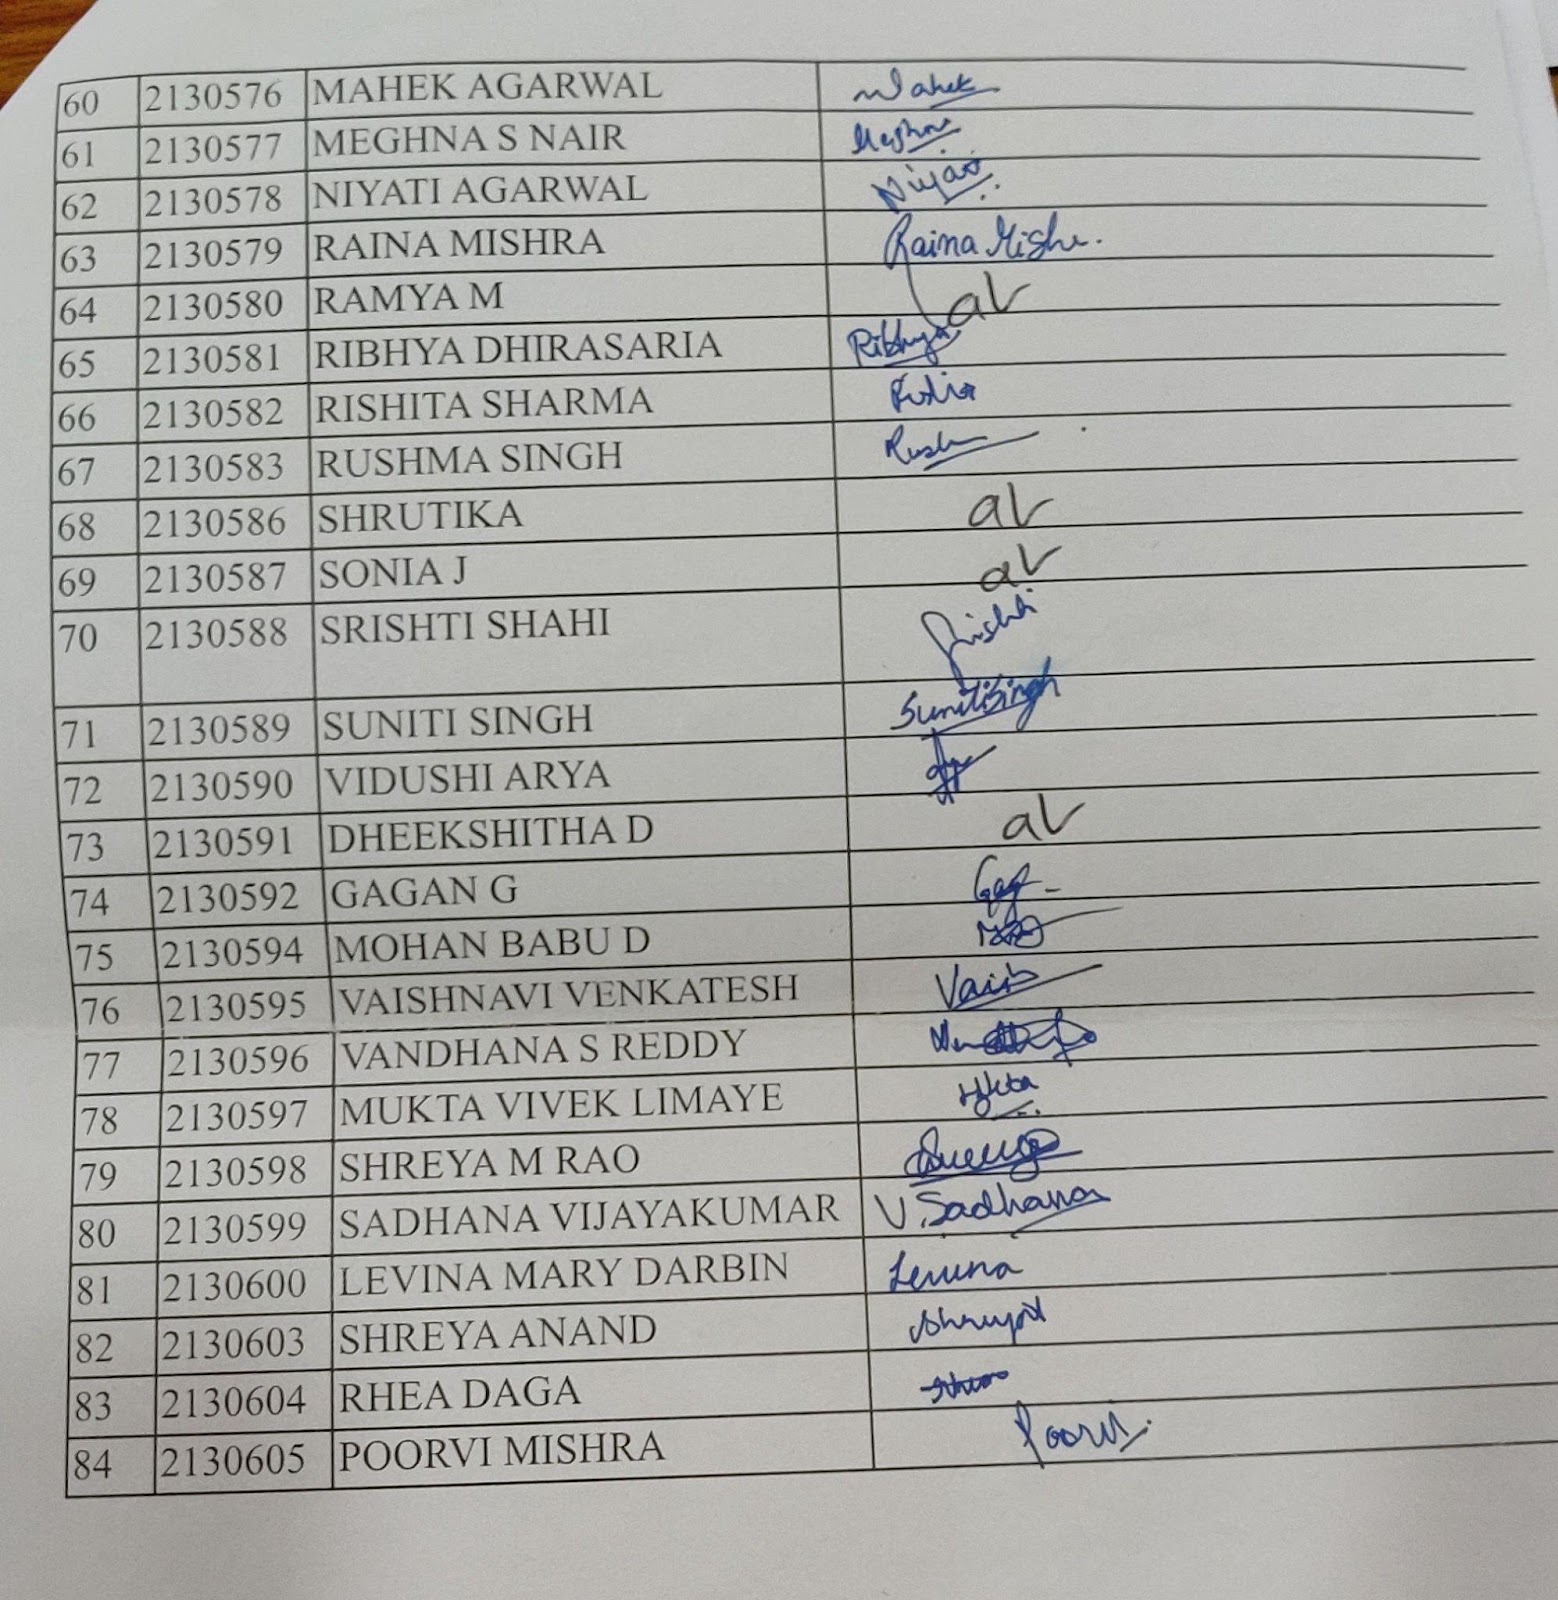 60 2130576 MAHEK AGARWAL Mahek
61 2130577 MEGHNA S NAIR Meghna
62 2130578 NIYATI AGARWAL Niyati
63 2130579 RAINA MISHRA Raina Mishra.
64 2130580 RAMYA M
65 2130581 RIBHYA DHIRASARIA Ribhya
66 2130582 RISHITA SHARMA
67 2130583 RUSHMA SINGH
68 2130586 SHRUTIKA
69 2130587 SONIA J
70 2130588 SRISHTI SHAHI Srishti
71 2130589 SUNITI SINGH Suniti Singh
72 2130590 VIDUSHI ARYA
73 2130591 DHEEKSHITHA D
74 2130592 GAGAN G
75 2130594 MOHAN BABU D
76 2130595 VAISHNAVI VENKATESH
77 2130596 VANDHANA S REDDY
78 2130597 MUKTA VIVEK LIMAYE
79 2130598 SHREYA M RAO
80 2130599 SADHANA VIJAYAKUMAR V. Sadhana
81 2130600 LEVINA MARY DARBIN Levina
82 2130603 SHREYA ANAND
83 2130604 RHEA DAGA
84 2130605 POORVI MISHRA Poorvi